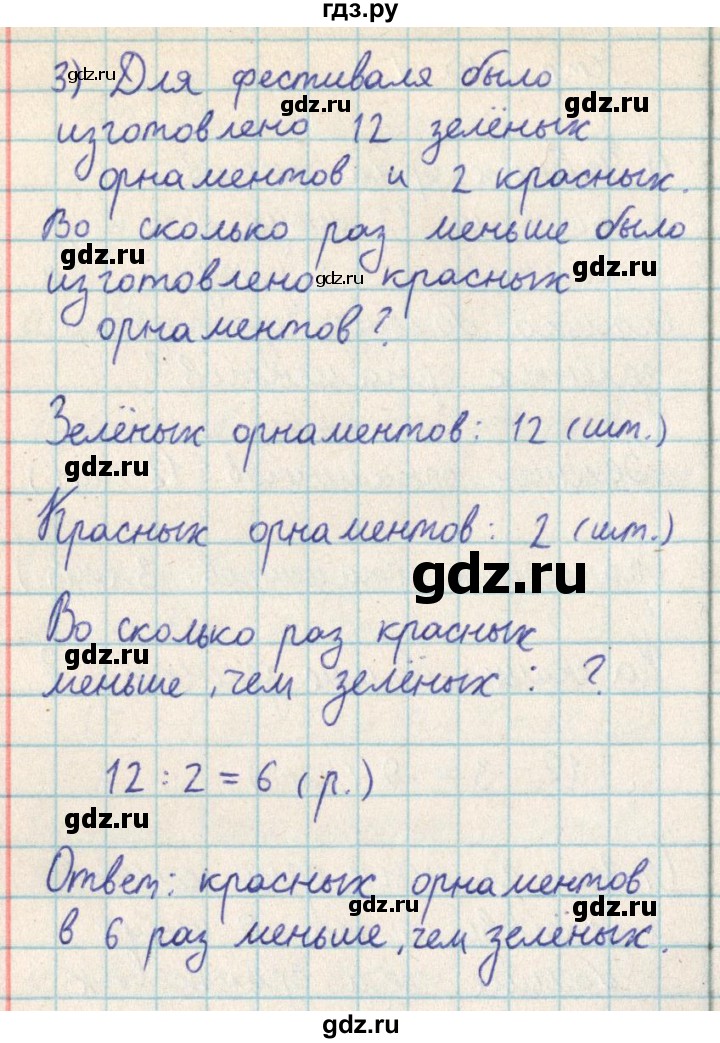 гдз.ру
3) Для фестиваля было
gdz.ru gdz.ru
изготовлено 12 зелёных
орнаментов и 2 красных.
Во сколько раз меньше было
gdz.ru gdz.ru
изготовлено gdz.ru красных
орнаментов?
Зелёных орнаментов: 12 (шт.)
gdz.ru
Красных орнаментов: 2 (шт.)
gdz.ru
Во сколько раз красных
gdz.ru
меньше, чем зелёных: ?
12 : 2 = 6 (р.)
gdz.ru
Ответ: красных орнаментов
gdz.ru gdz.ru
в 6 раз меньше, чем зелёных.
gdz.ru